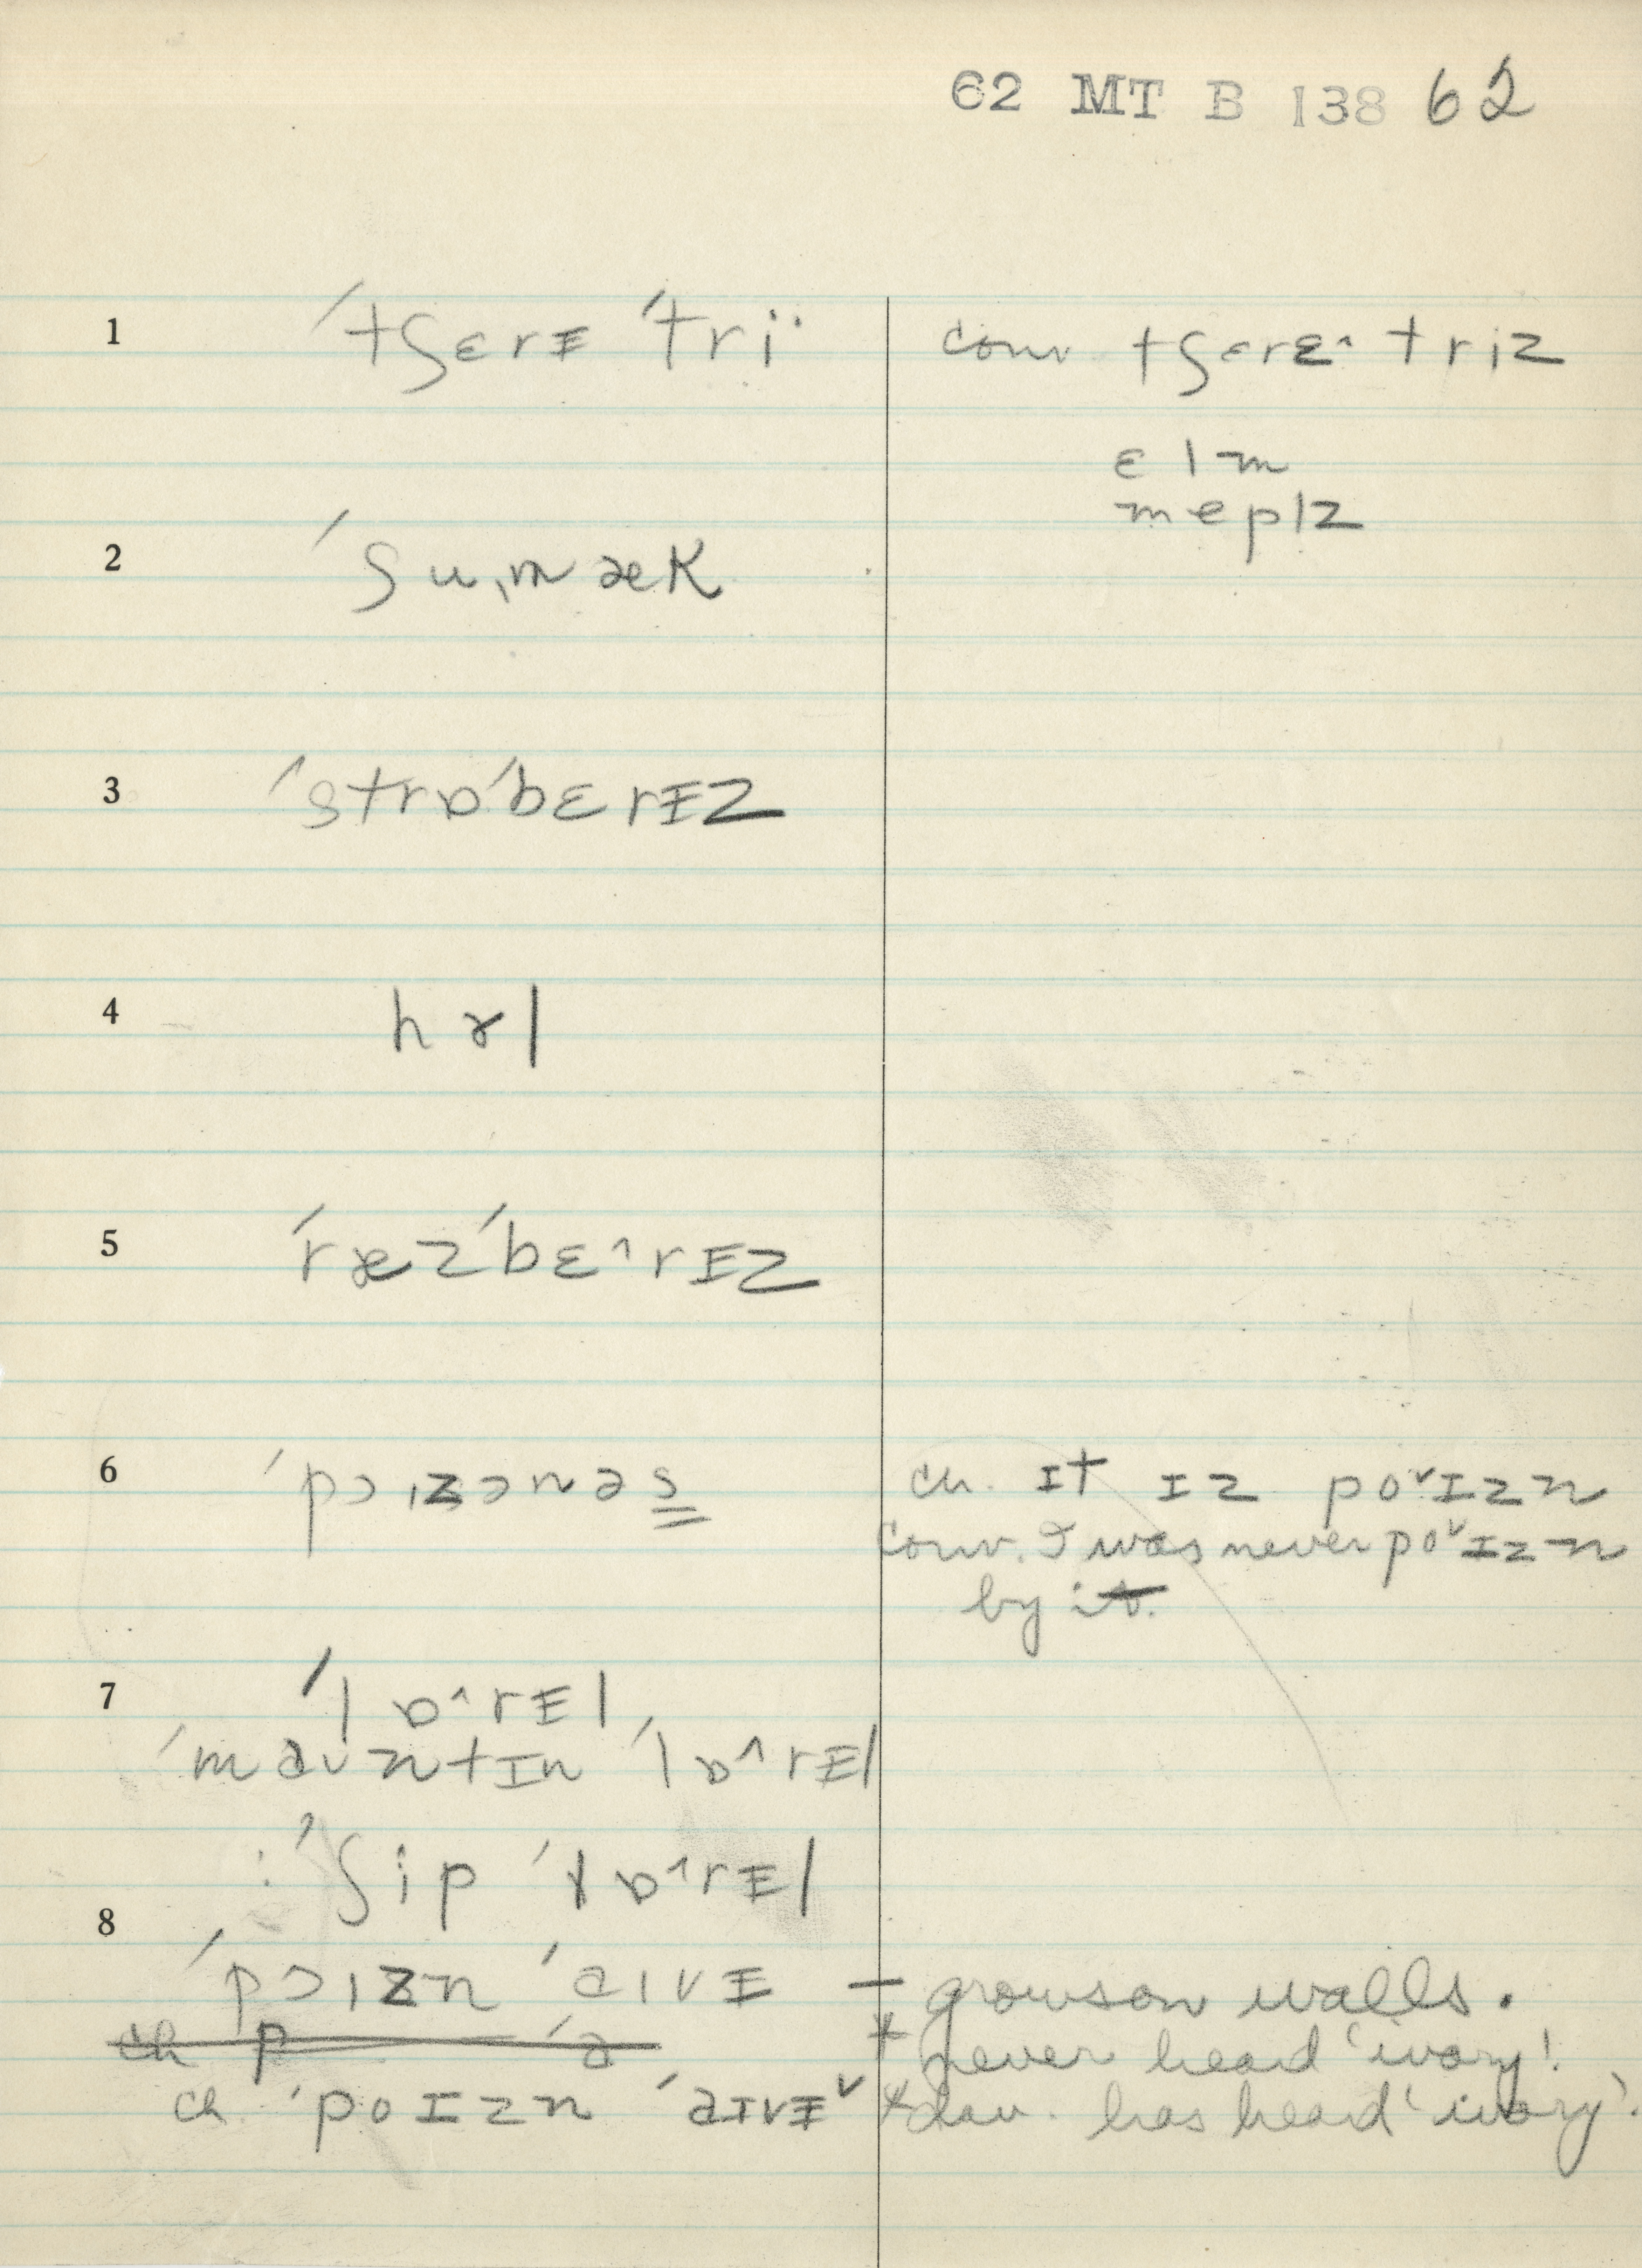 62 MT B 138 62
1 ´tʃɛrᵻ ´tri¨
conv tʃɛrɛ^ triz
ɛlm
meplz
2 ´ʃuˌmæk
3 ´strɒ´bɛrᵻz
4 hɤl
5 ´ræz´bɛ^rᵻz
6 ´pɔɪzənəs
ch. ɪt ɪz poˇɪzn
conv. I was never poˇɪzn
by it.
7 ´lɒ^rᵻl
´maʊntɪn ´lɒ^rᵻl
: ´ʃip ´lɒ^rᵻl
8
´pɔɪzn ´aɪvᵻ — grows on walls.
ch p ´a + never heard 'ivory'.
ch. ´poɪzn ´aɪvᵻˇ + dau. has heard 'ivory'.